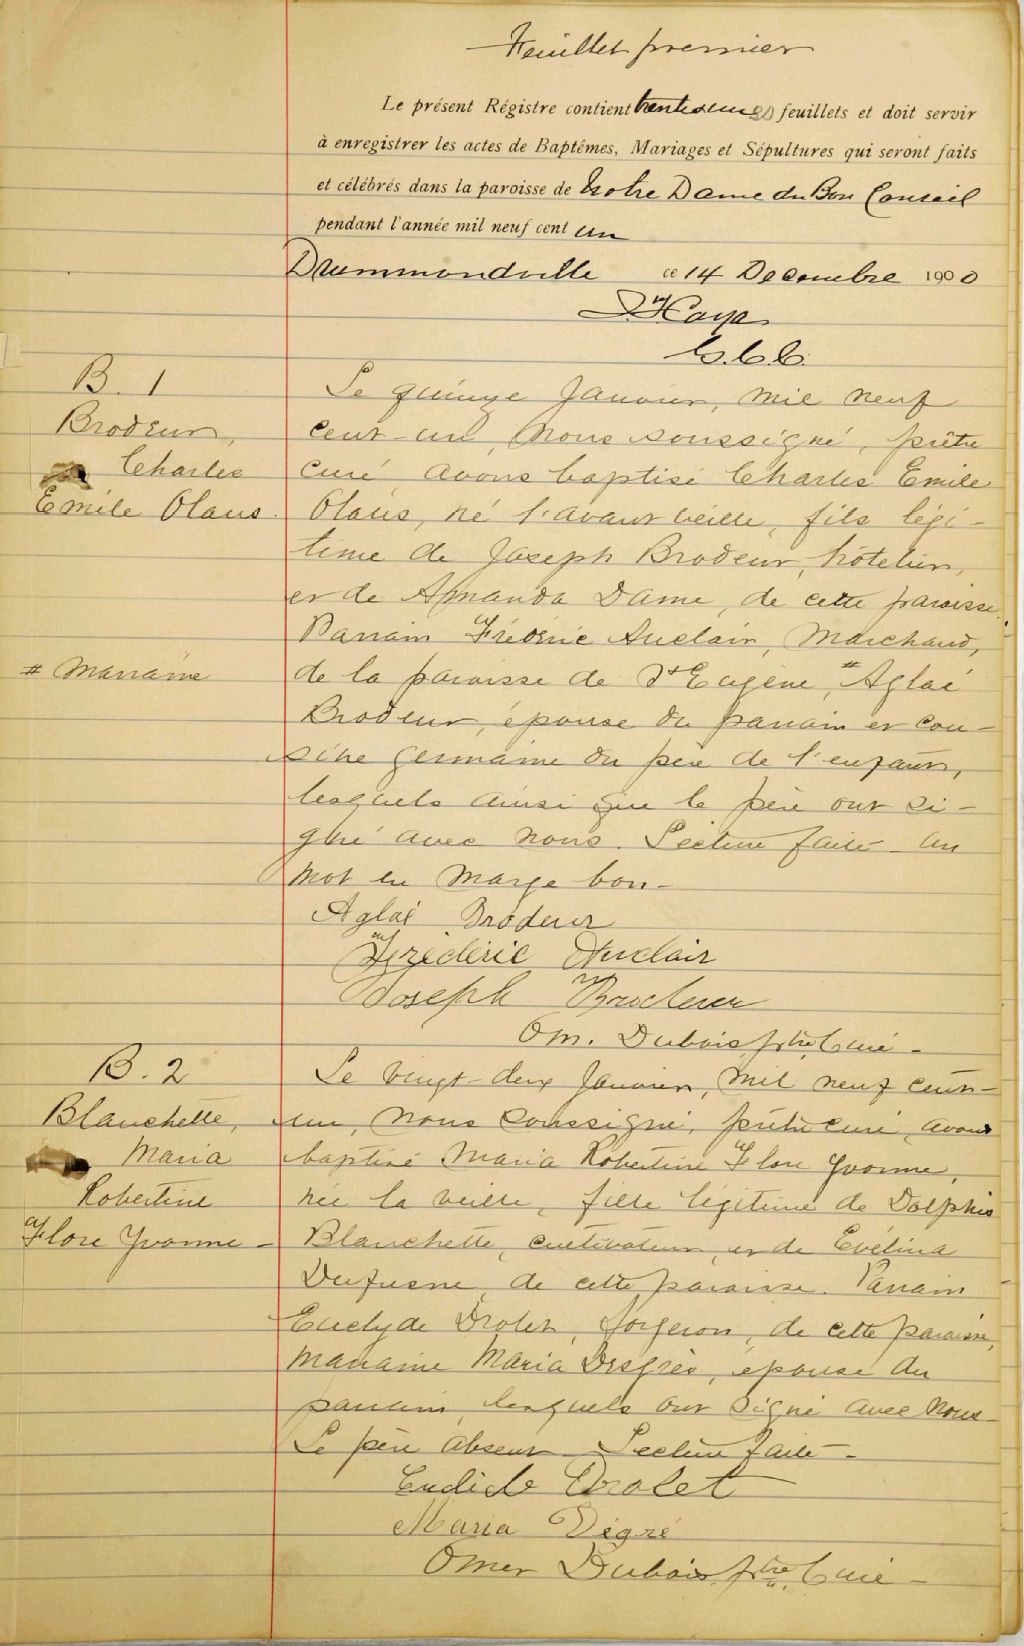 Feuillet premier
Le présent Régistre contient feuillets et doit servir
à enregistrer les actes de Baptêmes, Mariages et Sépultures qui seront faits
et célébrés dans la paroisse de Notre Dame du Bon Conseil
pendant l'année mil neuf cent un
Drummondville ce 14 Decembre 1900
B. 1
Brodeur,
Charles
Emile Olaüs.
Le quinze Janvier, mil neuf
cent-un, nous soussigné, prêtre
curé avons baptisé Charles Emile
Olaüs, né l'avant veille, fils légi-
time de Joseph Brodeur, hôtelier,
et de Amanda Dame, de cette paroisse.
Parrain Frédéric Auclair, Marchand,
# Marraine
de la paroisse de St Eugène, # Aglaé
Brodeur, épouse du parrain et cou-
sine germaine du père de l'enfant,
lesquels ainsi que le père ont si-
gné avec nous. Lecture faite - un
mot en marge bon -
Aglaé Brodeur
Frédéric Auclair
Joseph Brodeur
Om. Dubois ptre Curé -
B. 2
Blanchette,
Maria
Robertine
Flore Yvonne -
Le vingt-deux Janvier, mil neuf cent-
un, nous soussigné, prêtre curé, avons
baptisé Maria Robertine Flore Yvonne,
née la veille, fille légitime de Dolphis
Blanchette, cultivateur, et de Evélina
Dufresne, de cette paroisse. Parrain
Euclyde Drolet, forgeron, de cette paroisse,
Marraine Maria Desgrès, épouse du
parrain, lesquels ont signé avec nous -
Le père absent - Lecture faite -
Euclide Drolet
Maria Dégré
Omer Dubois ptre Curé -